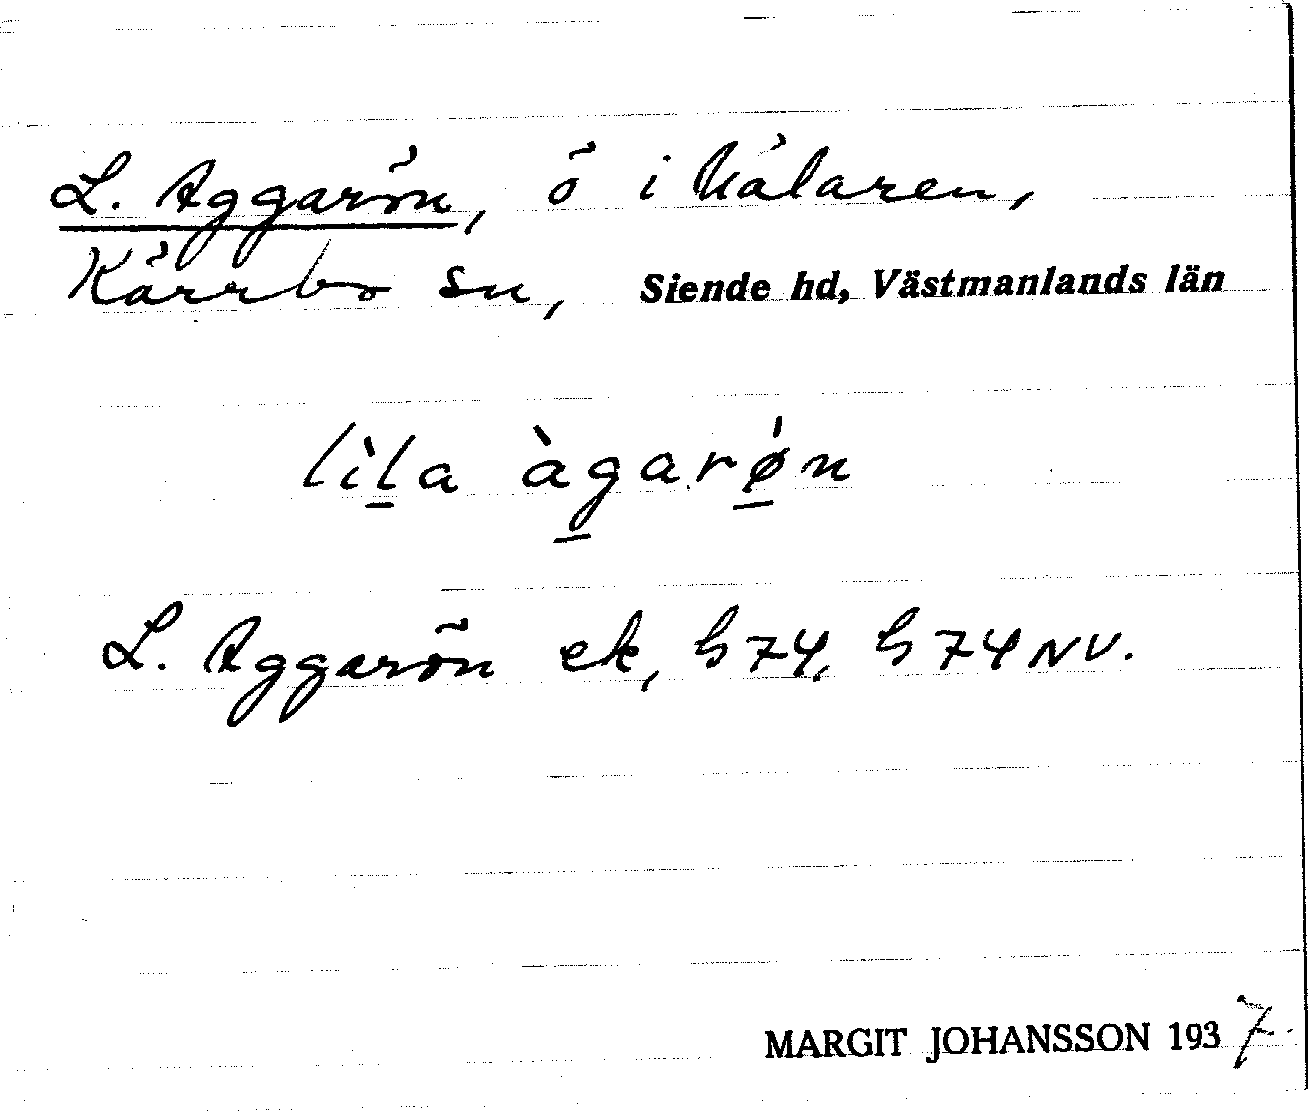 L. Aggarön, ö i Mälaren,
Kärrbo sn, Siende hd, Västmanlands län
lìḻa àg̱arǿ̱n
L. Aggarön ek, h 74, h 74 NV.
MARGIT JOHANSSON 1937.